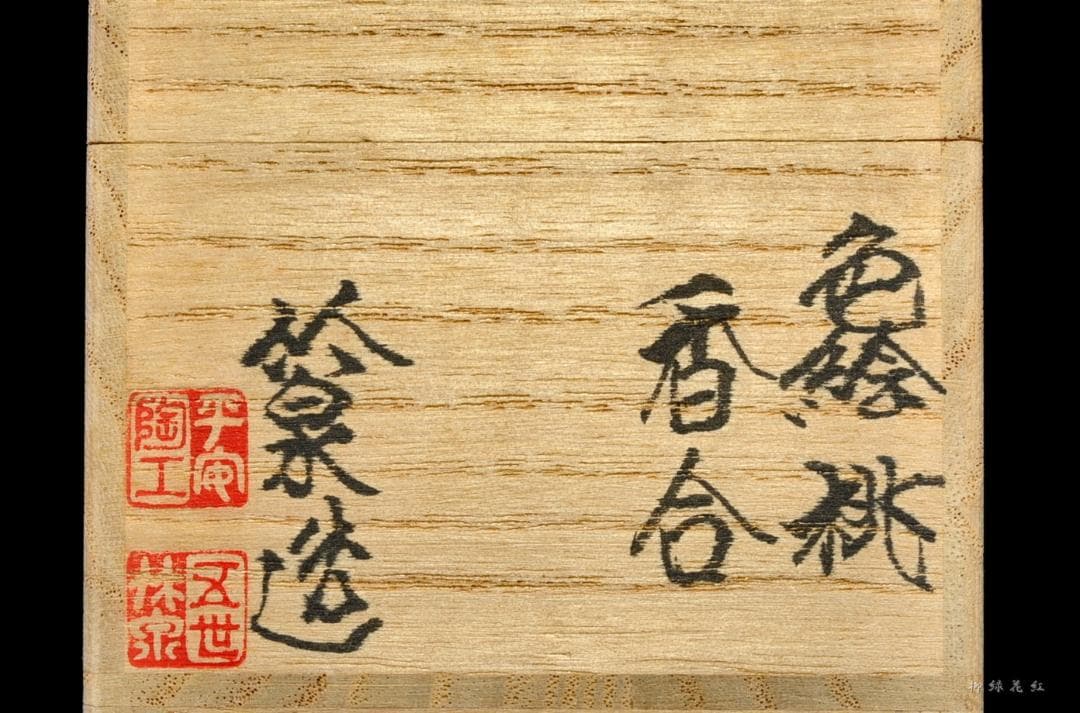 色絵桃
香合
林泉造
平安
陶工
五世
林泉
柳緑花紅